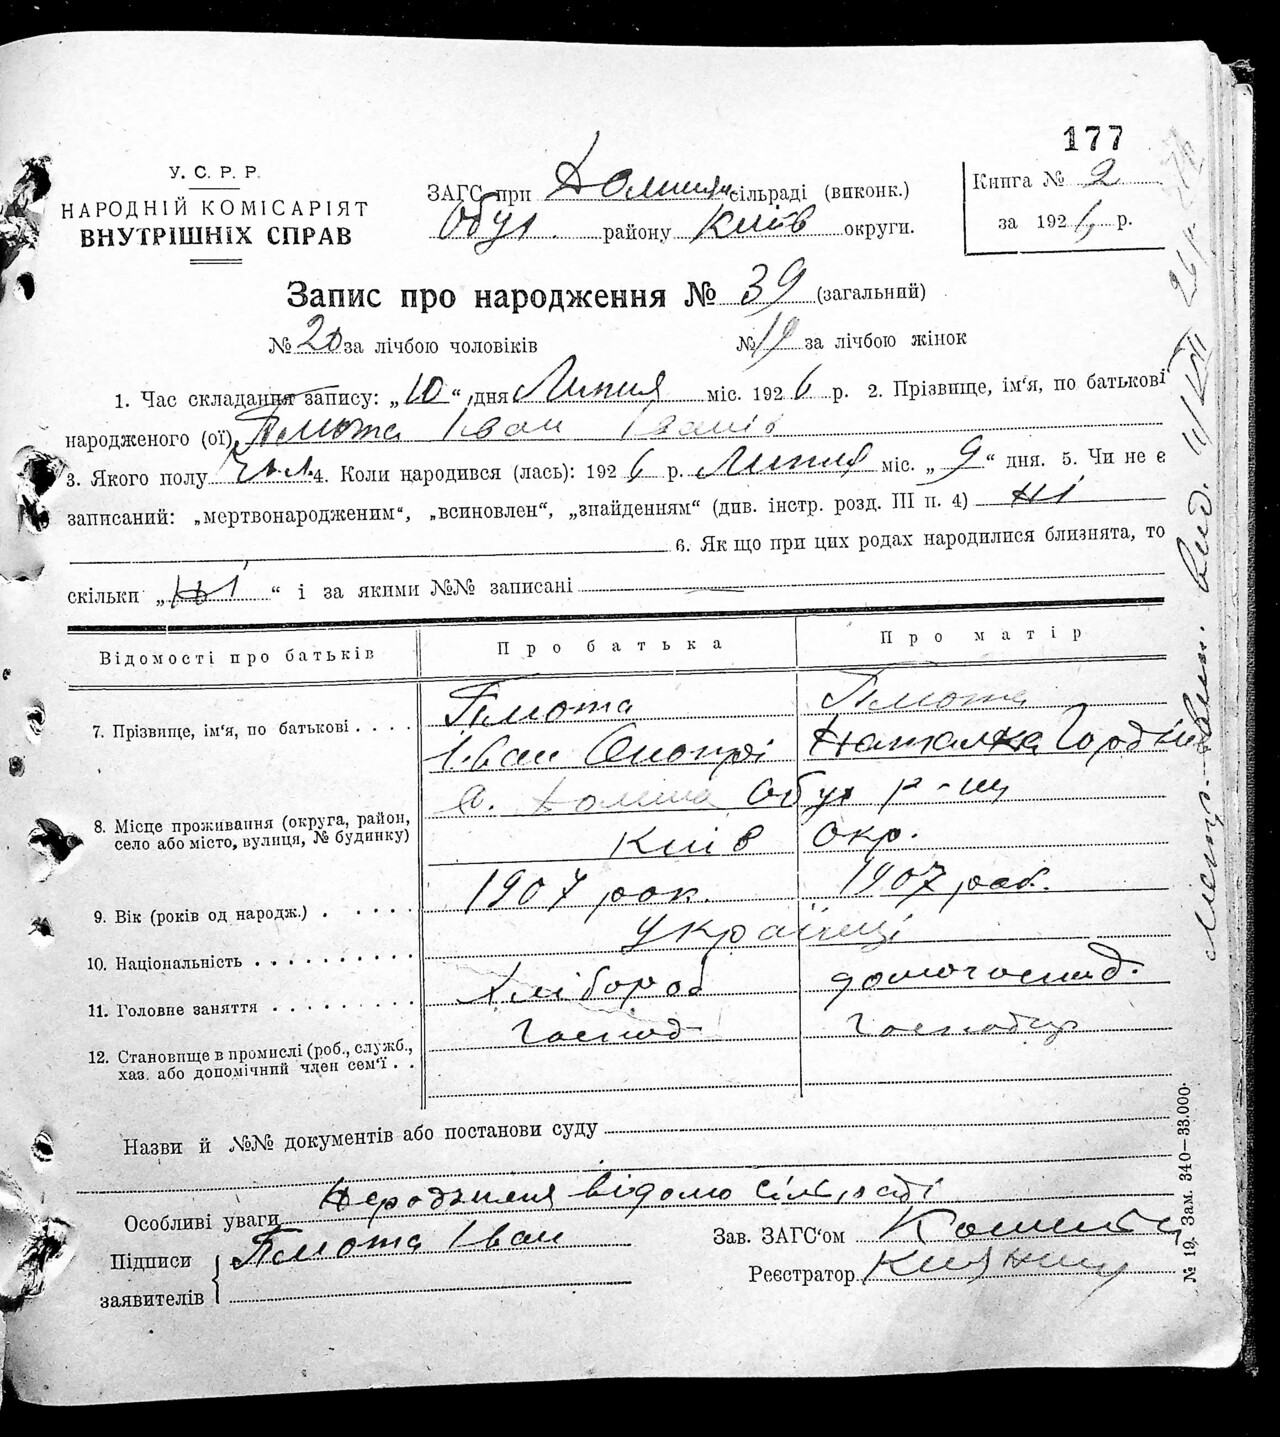 177
У. С. Р. Р.
НАРОДНІЙ КОМІСАРІЯТ
ВНУТРІШНІХ СПРАВ
ЗАГС при Долинян сільраді (виконк.)
Обух. району Київ округи.
Книга № 2
за 1926 р.
Запис про народження № 39 (загальний)
№ 20 за лічбою чоловіків № 19 за лічбою жінок
1. Час складання запису: „10“ дня Липня міс. 1926 р. 2. Прізвище, ім‘я, по батькові
народженого (ої) Плюта Іван Іванів
3. Якого полу Чол. 4. Коли народився (лась): 1926 р. Липня міс. „9“ дня. 5. Чи не є
записаний: „мертвонародженим“, „всиновлен“, „знайденням“ (див. інстр. розд. III п. 4) Ні
6. Як що при цих родах народилися близнята, то
скільки „Ні“ і за якими №№ записані
Відомості про батьків Про батька Про матір
7. Прізвище, ім‘я, по батькові . . . . Плюта Плюта
Іван Наталка Гордіів
8. Місце проживання (округа, район, село або місто, вулиця, № будинку) с. Долина Обух р-ну
Київ окр.
9. Вік (років од народж.) . . . . . 1907 рок. 1907 рок.
10. Національність . . . . . . . . . . Українці
11. Головне заняття . . . . . . . . Хлібороб домогоспод.
12. Становище в промислі (роб., служб., хаз. або допомічний член сем‘ї . . Господ
Назви й №№ документів або постанови суду
Особливі уваги Народження відомо сільраді
Підписи заявителів Плюта Іван
Зав. ЗАГС‘ом
Реєстратор Кияниц
№ 19. Зам. 340—33.000.